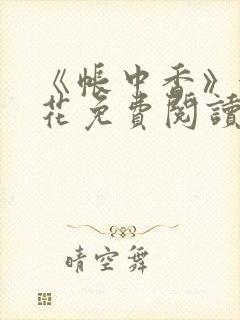 《帳中香》
花免費閱讀
晴空舞